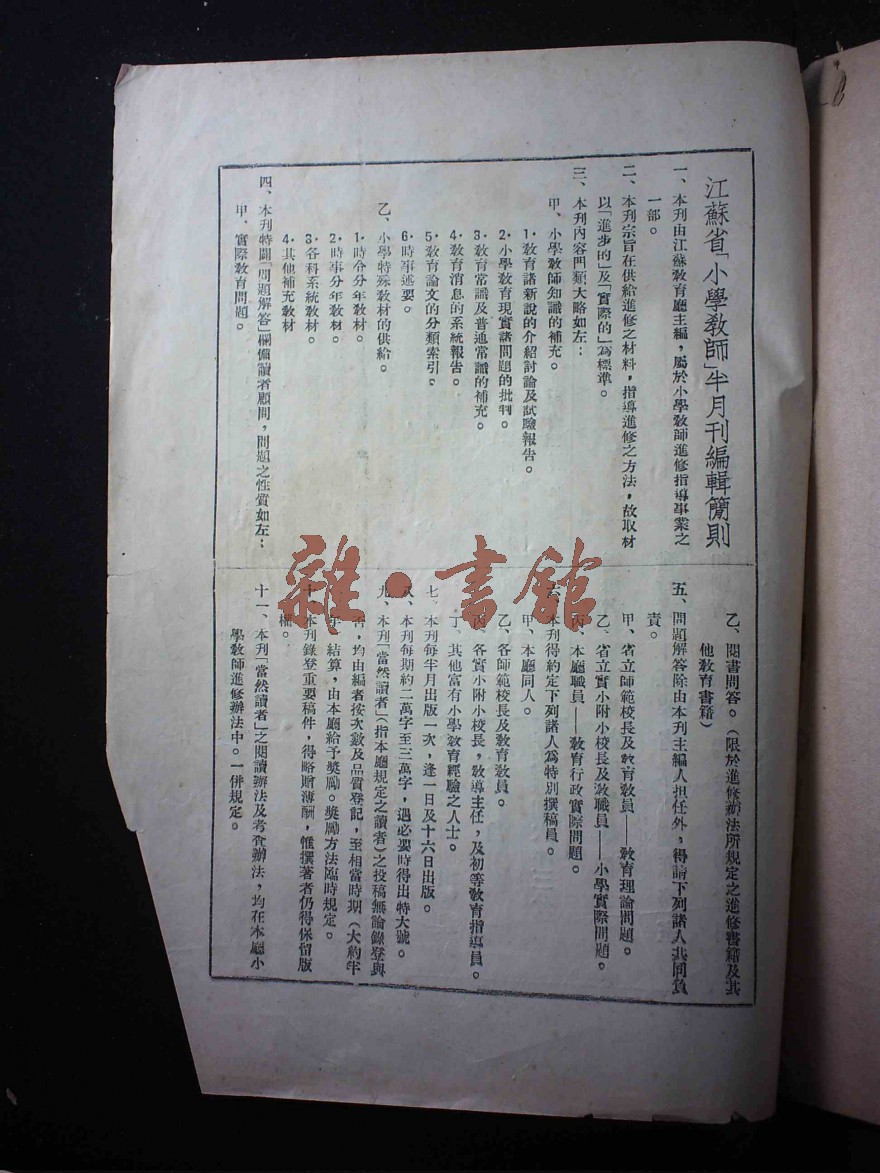 江蘇省「小學敎師」半月刊編輯簡則
一、本刊由江蘇敎育廳主編，屬於小學敎師進修指導事業之
一部。
二、本刊宗旨在供給進修之材料，指導進修之方法，故取材
以「進步的」及「實際的」爲標準。
三、本刊內容門類大略如左：
甲、小學敎師知識的補充。
1.敎育諸新說的介紹討論及試驗報告。
2.小學敎育現實諸問題的批判。
3.敎育常識及普通常識的補充。
4.敎育消息的系統報告。
5.敎育論文的分類索引。
6.時事述要。
乙、小學特殊敎材的供給。
1.時令分年敎材。
2.時事分年敎材。
3.各科系統敎材。
4.其他補充敎材
四、本刊特闢「問題解答」欄備讀者顧問，問題之性質如左：
甲、實際敎育問題。
乙、閱書問答。（限於進修辦法所規定之進修書籍及其
他敎育書籍）
五、問題解答除由本刊主編人担任外，得請下列諸人共同負
責。
甲、省立師範校長及敎育敎員——敎育理論問題。
乙、省立實小附小校長及敎職員——小學實際問題。
丙、本廳職員——敎育行政實際問題。
六、本刊得約定下列諸人爲特別撰稿員。
甲、本廳同人。
乙、各師範校長及敎育敎員。
丙、各實小附小校長，敎導主任，及初等敎育指導員。
丁、其他富有小學敎育經驗之人士。
七、本刊每半月出版一次，逢一日及十六日出版。
八、本刊每期約二萬字至三萬字，遇必要時得出特大號。
九、本刊「當然讀者」（指本廳規定之讀者）之投稿無論錄登與
否，均由編者按次數及品質登記，至相當時期（大約半
年）結算，由本廳給予獎勵。獎勵方法臨時規定。
十、本刊錄登重要稿件，得略贈薄酬，惟撰著者仍得保留版
權。
十一、本刊「當然讀者」之閱讀辦法及考查辦法，均在本廳小
學敎師進修辦法中。一併規定。
雜·書館